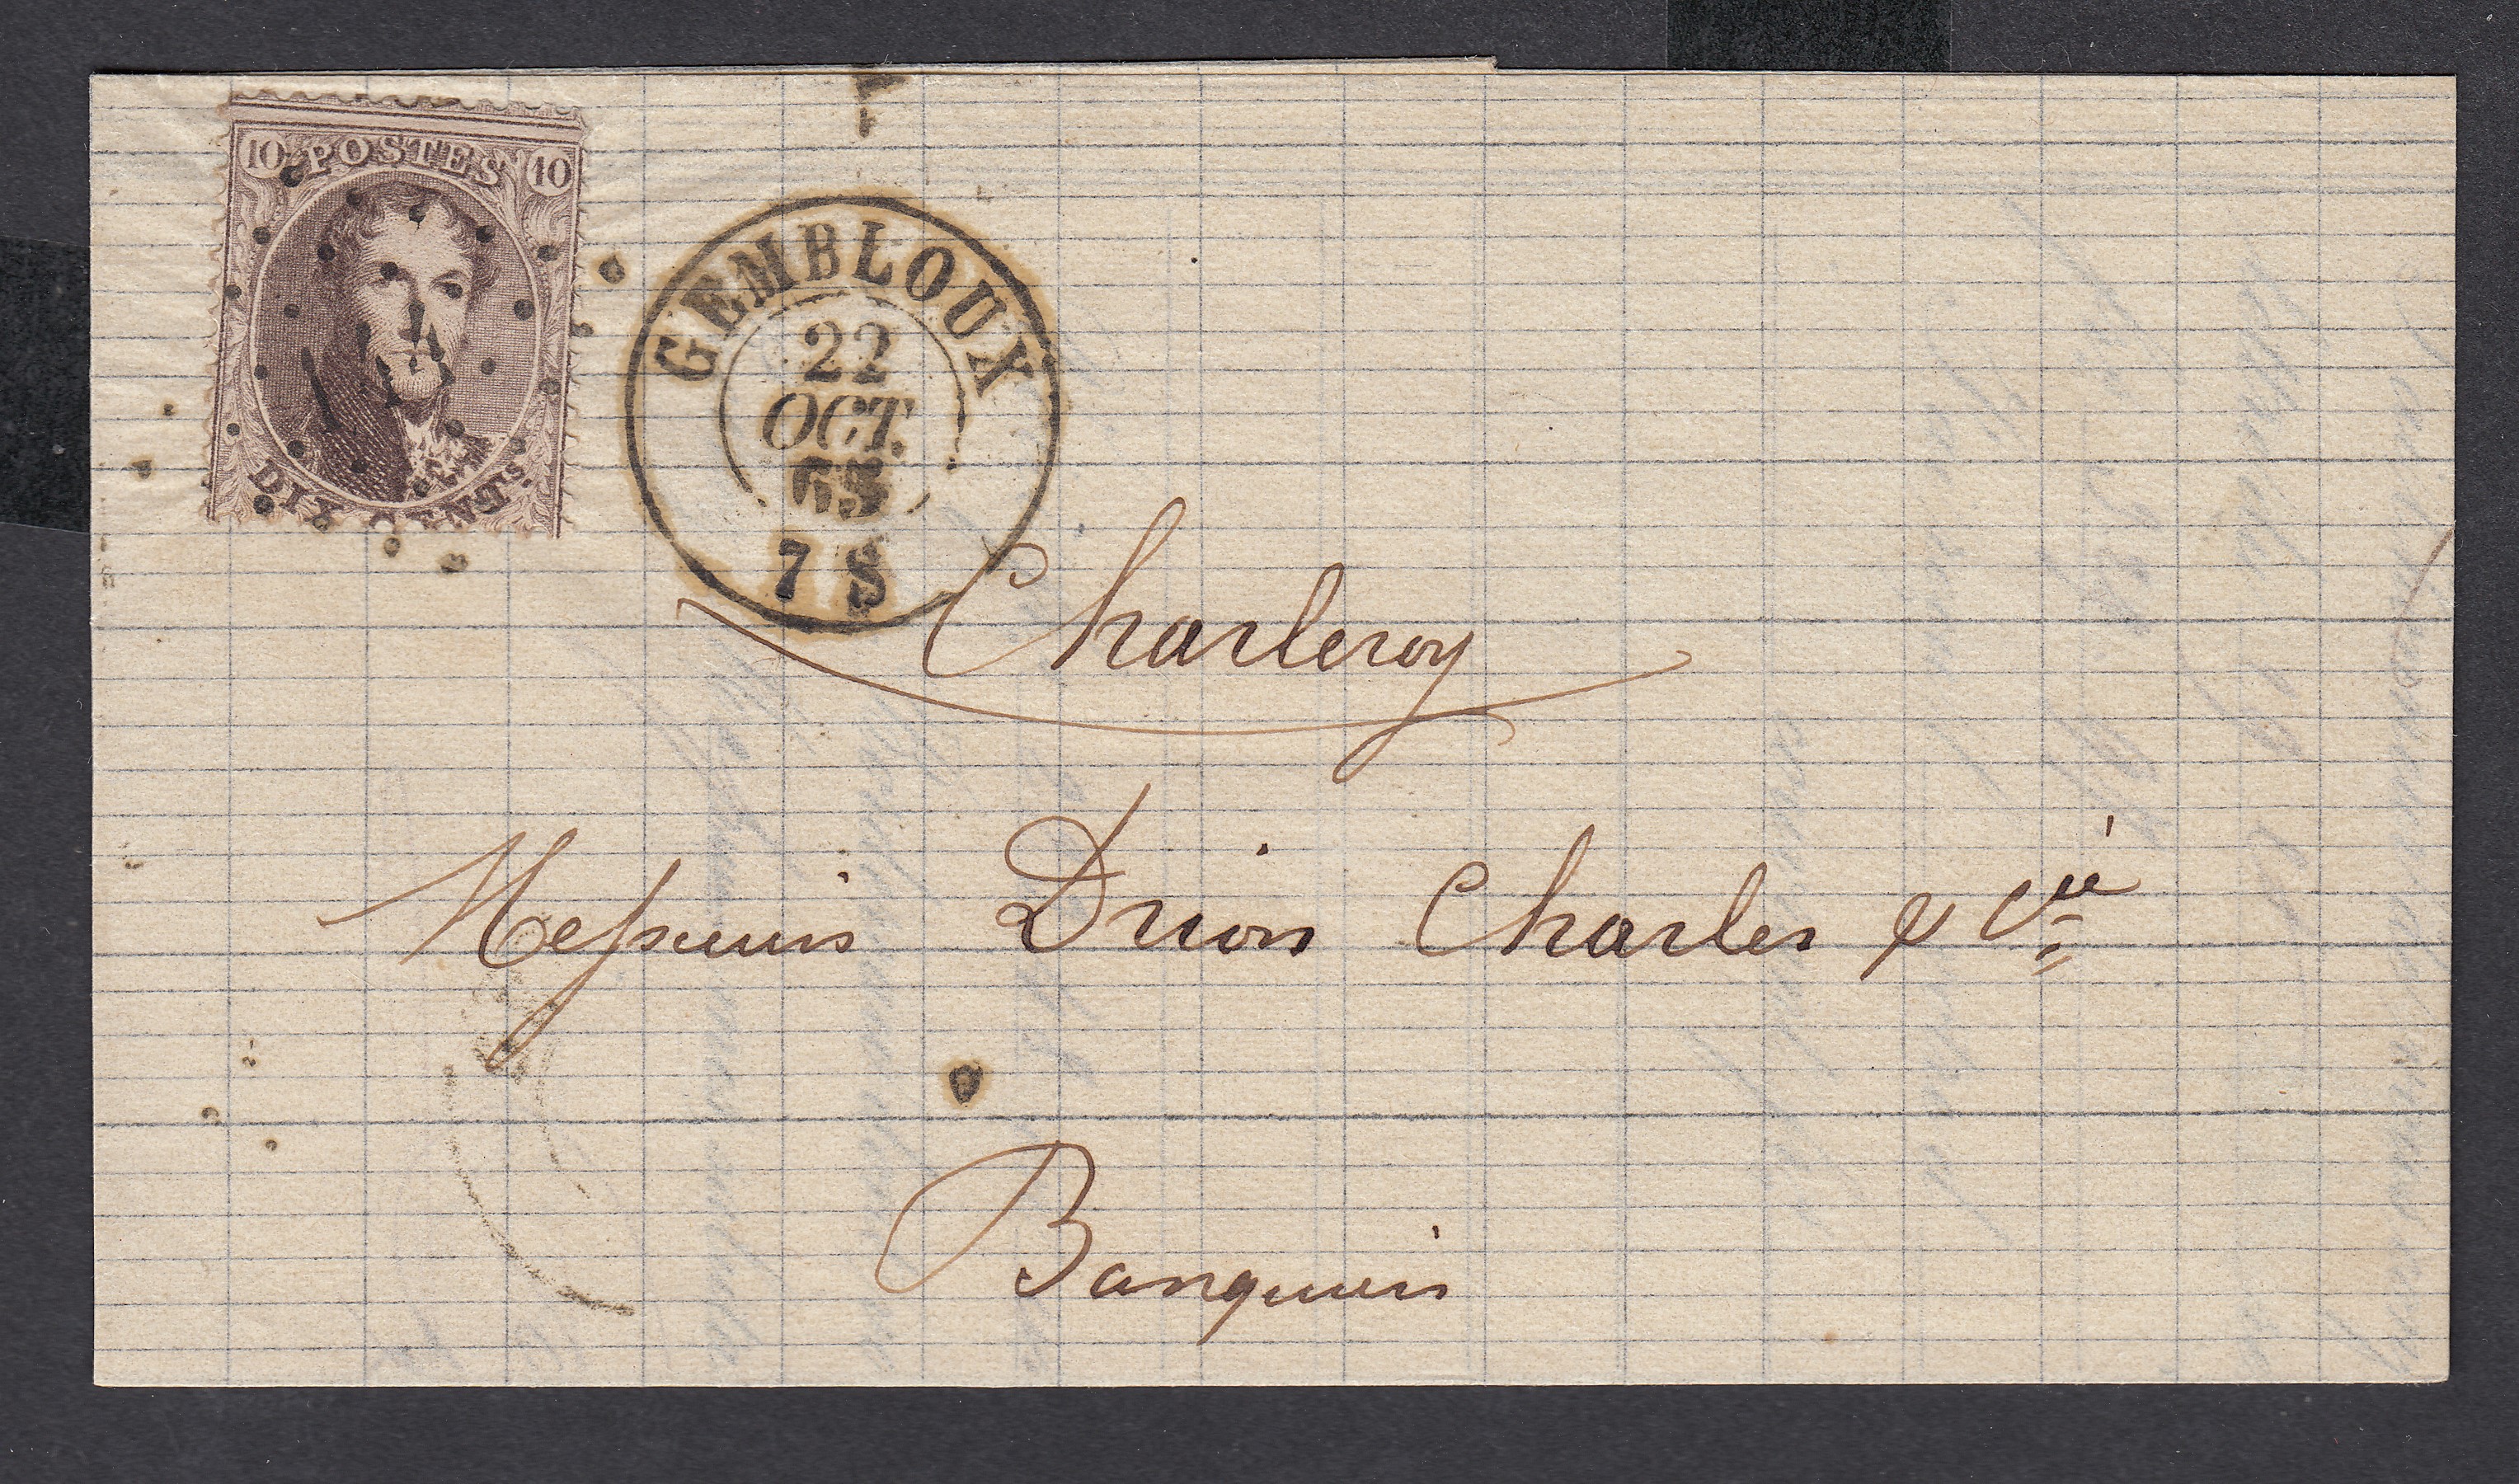 10 POSTES 10
DIX CENTS
GEMBLOUX
22
OCT.
65
7 S
Charleroy
Messieurs Drion Charles & Cie
Banquiers